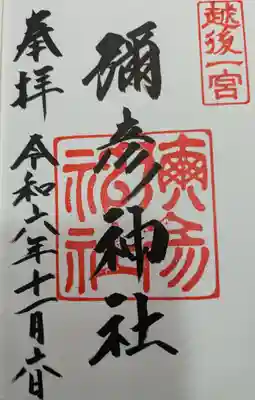 越後一宮
彌彦神社
奉拝
令和六年十一月六日